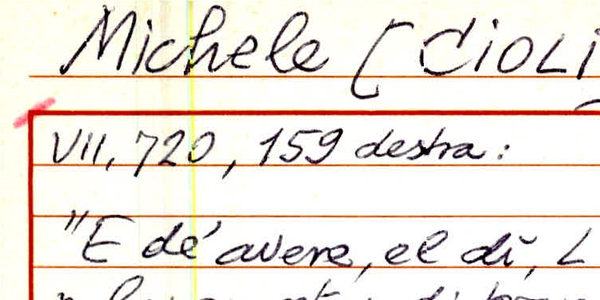 Michele [CIOLI
VII, 720, 159 destra:
"E de' avere, el dì, L